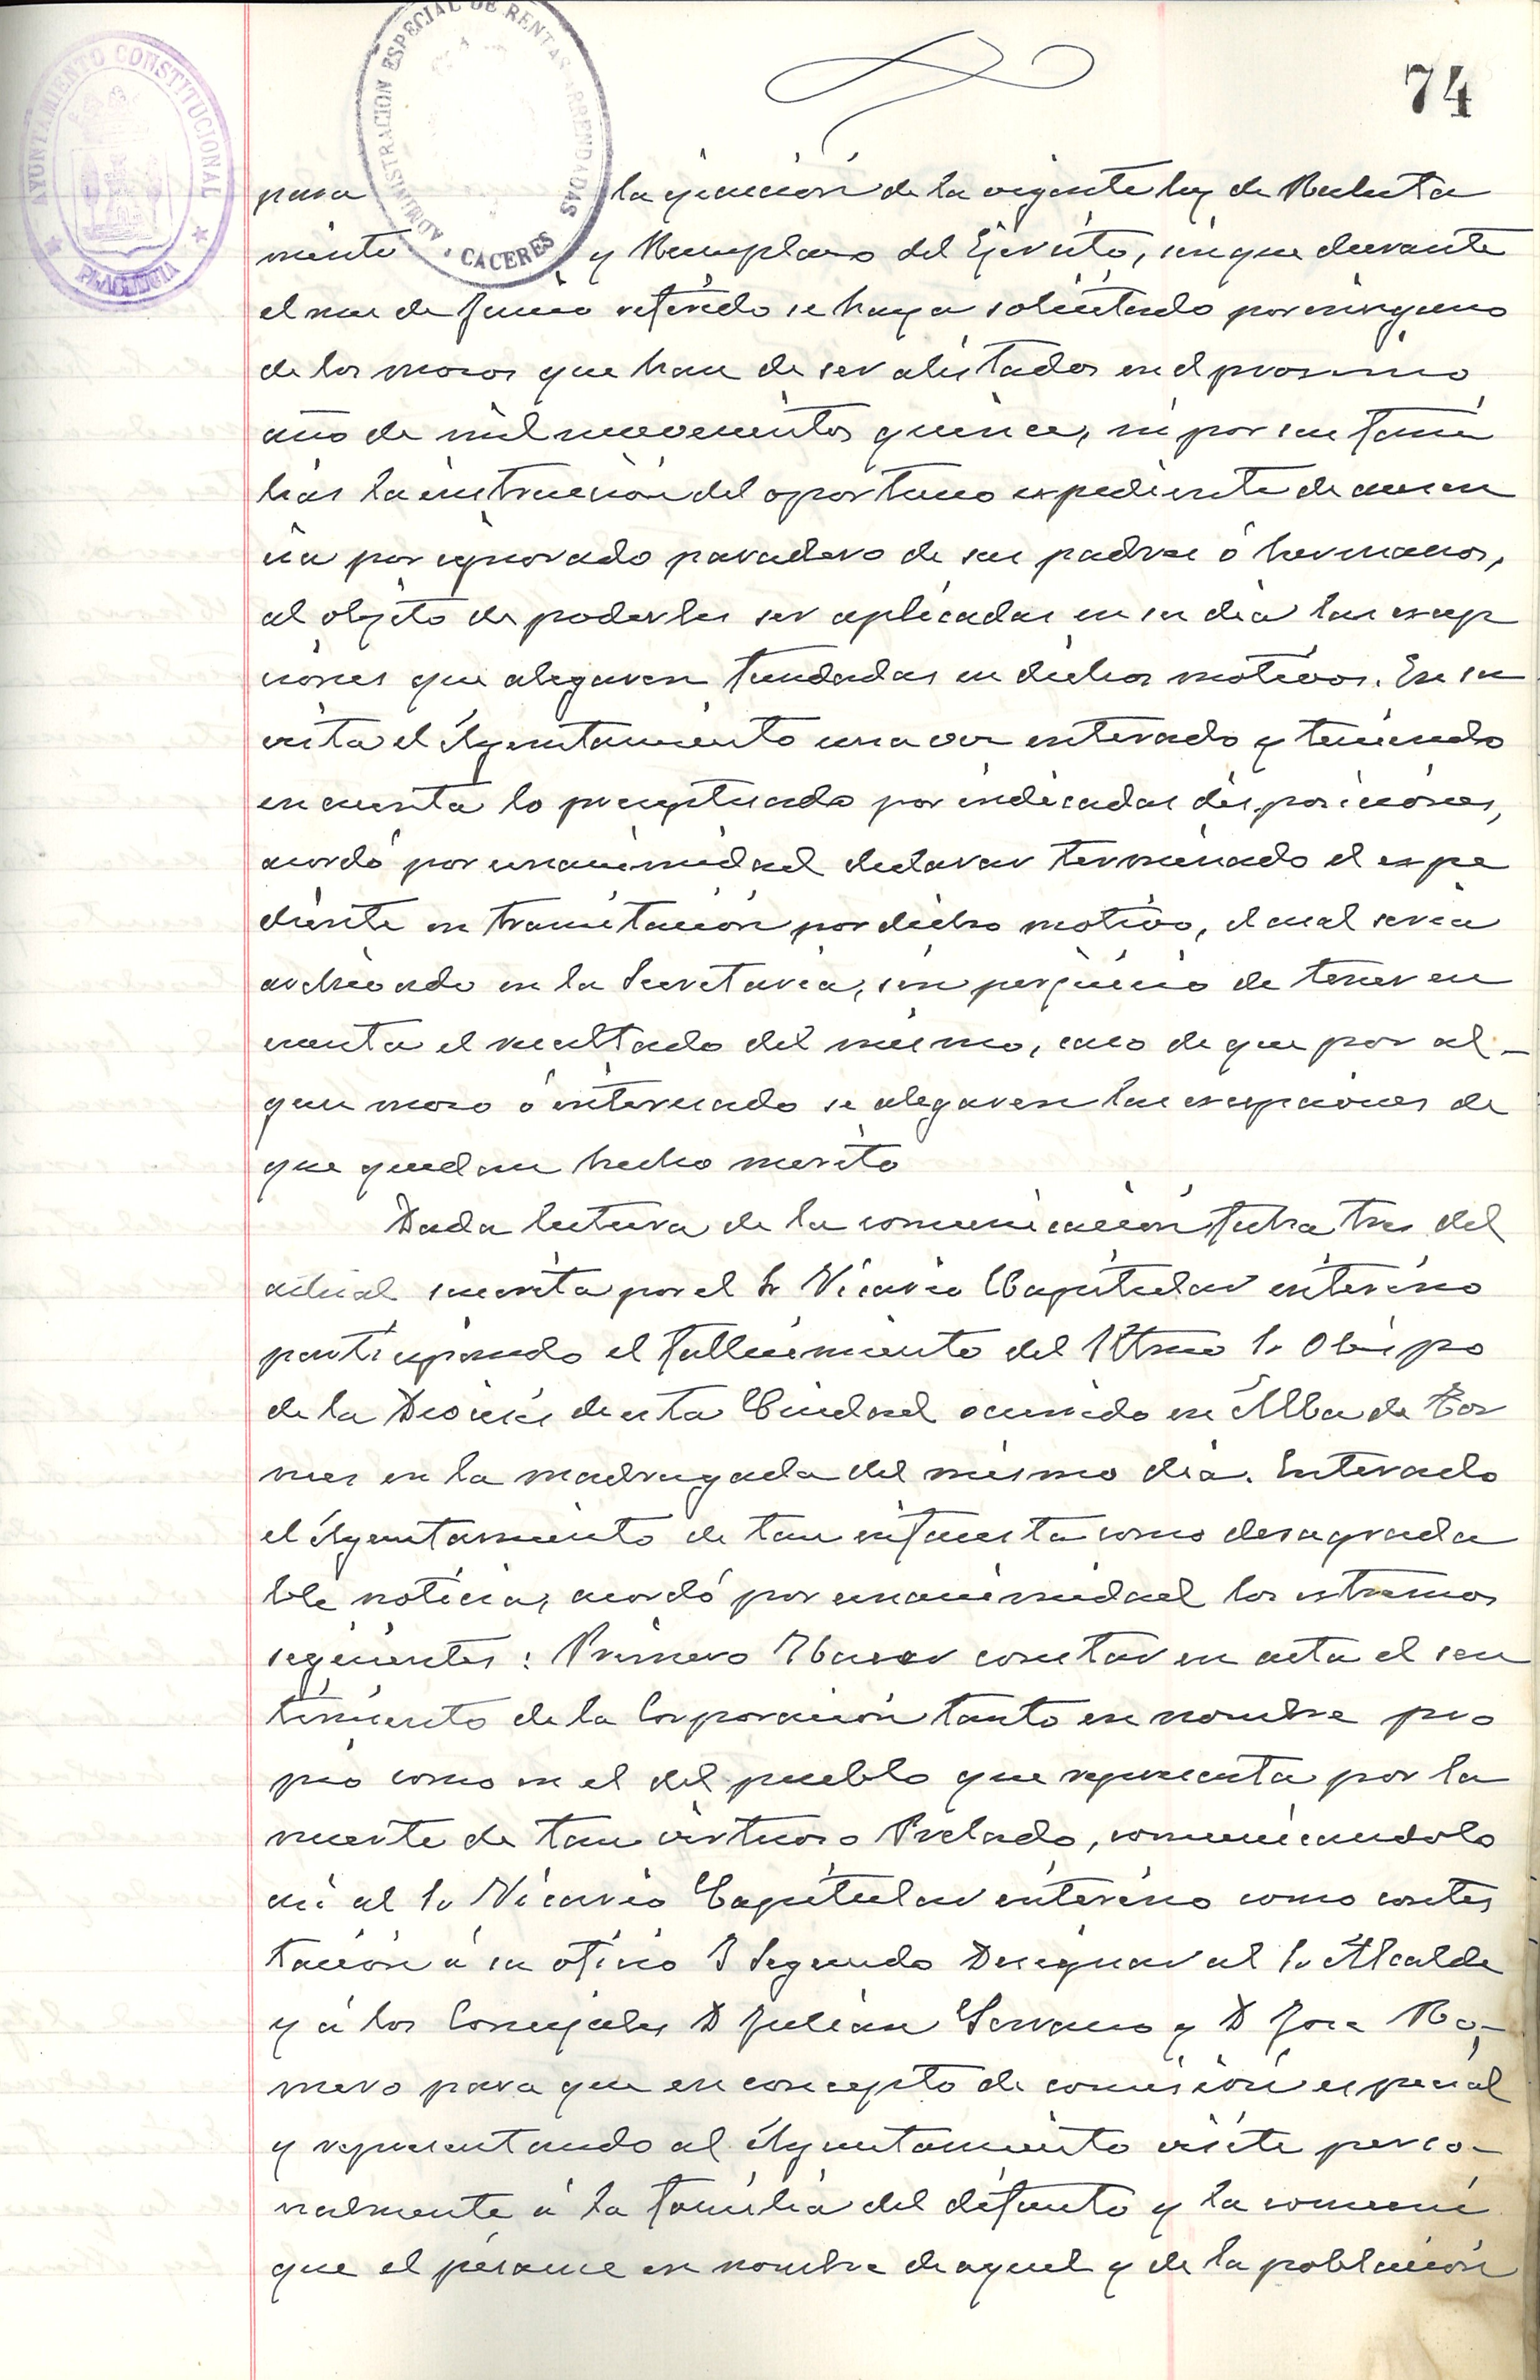 74
AYUNTAMIENTO CONSTITUCIONAL
PLASENCIA
ADMINISTRACION ESPECIAL DE RENTAS ARRENDADAS
CACERES
para la ejecución de la vigente ley de Recluta
miento y Reemplazo del Ejército, sin que durante
el mes de Junio referido se haya solicitado por ninguno
de los mozos que han de ser alistados en el proximo
año de mil novecientos quince, ni por sus fami
lias la instrucción del oportuno expediente de ausen
cia por ignorado paradero de sus padres ó hermanos,
al objeto de poderles ser aplicadas en su dia las excep
ciones que alegaren fundadas en dichos motivos. En su
vista el Ayuntamiento una vez enterado y teniendo
en cuenta lo preceptuado por indicadas disposiciones,
acordó por unanimidad declarar terminado el expe
diente en tramitación por dicho motivo, el cual seria
archivado en la Secretaria, sin perjuicio de tener en
cuenta el resultado del mismo, caso de que por al-
gun mozo ó interesado se alegaren las excepciones de
que quedan hecho merito
Dada lectura de la comunicación fecha tres del
actual suscrita por el Sr Vicario Capitular interino
participando el fallecimiento del Iltmo Sr Obispo
de la Diocesis de esta Ciudad ocurrido en Alba de Tor
mes en la madrugada del mismo dia. Enterado
el Ayuntamiento de tan infausta como desagrada
ble noticia, acordó por unanimidad los extremos
siguientes: Primero Hacer constar en acta el sen
timiento de la Corporación tanto en nombre pro
pio como en el del pueblo que representa por la
muerte de tan virtuoso Prelado, comunicandolo
asi al Sr Vicario Capitular interino como contes
tación á su oficio Y Segundo Designar al Sr Alcalde
y á los Concejales D Julián Serrano y D Jose Ro-
mero para que en concepto de comisión especial
y representando al Ayuntamiento visite perso-
nalmente á la familia del difunto y la comuni
que el pésame en nombre de aquel y de la población